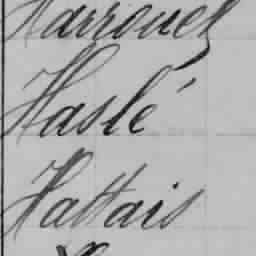 Harrouet
Haslé
Hattais